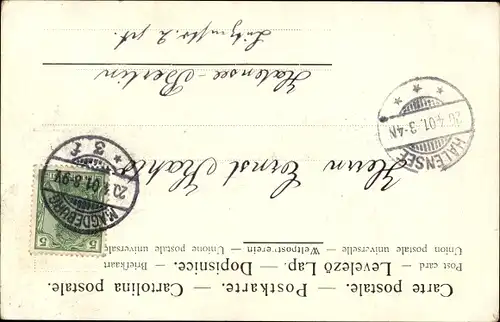 Carte postale. — Postkarte. — Cartolina postale.
Post card — Levelezö Lap. — Dopisnice. — Briefkaart
Union postale universelle — Weltpostverein — Unione postale universale
5 5
MAGDEBURG
20.4.01.8-9V.
* 3 f
HALENSEE
20.4.01.3-4N
* * *
Herrn Ernst
Halensee-Berlin